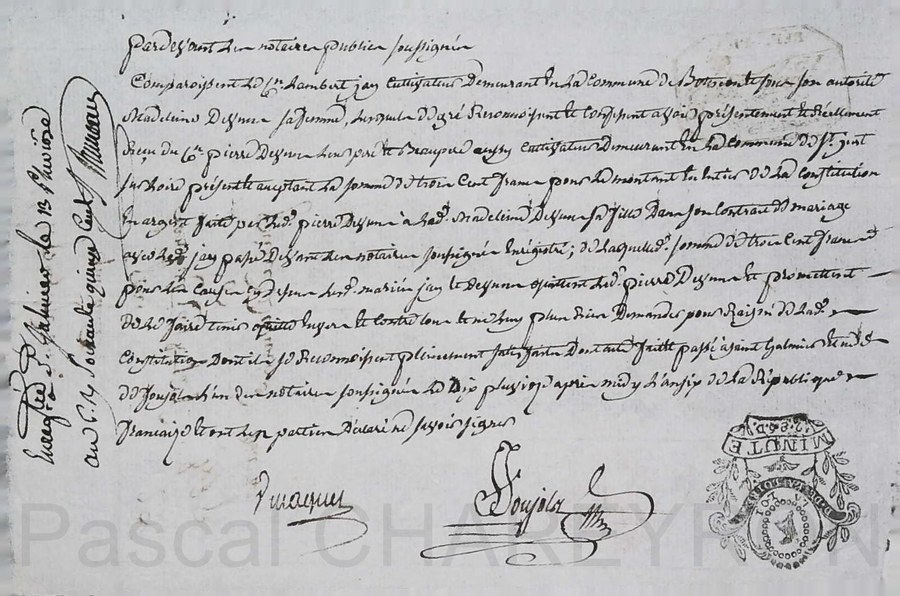 pardevant les notaires publics soussignés
Comparoissent le Cen Lambert jay Cultivateur Demeurant En La Commune de sous son autorité
Madeleine Deyrune sa femme, Lesquels de gré Reconnoissent et Confessent avoir présentement et Réellement
Reçu du Cen pierre Deyrune Leur père et Beaupere aussy Cultivateur Demeurant En La Commune de St just
sur Loire présent et aceptant La somme de trois Cent francs pour Le montant En Entier de La Constitution
En argent faite par led. pierre Deyrune à lad. Madeleine Deyrune sa fille Dans son Contrat de mariage
avec led. jay passé Devant les notaires soussignés Enregistré; de Laquelle d. somme de trois Cent francs
pour les Causes Cy dessus Lesd. mariés jay et Deyrune quittent led. pierre Deyrune et promettent
de Le faire tenir quitte Envers et Contre tous et ne luy plus Rien Demander pour Raison de Lad.
Constitution Dont ils se Reconnoissent pleinement satisfaits Dont acte fait et passé a saint Galmier Etude
de Joujoly L'un des notaires soussignés Le Dix pluviose après midy L'an six de La République
francaise et ont Les parties Déclaré ne savoir signer
Enregistré à St Galmier Le 13 Pluviose
an 6. Reçu Soixante quinze Cent.
Joujoly
MINUTE
Pascal CHAREYRON